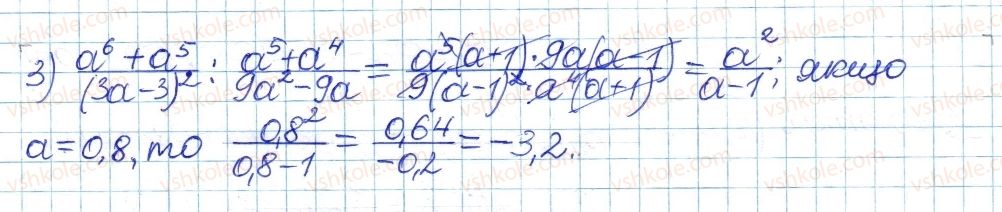 3) \frac{a^6 + a^5}{(3a-3)^2} : \frac{a^5 + a^4}{9a^2 - 9a} = \frac{a^5(a+1) \cdot 9a(a-1)}{9(a-1)^2 \cdot a^4(a+1)} = \frac{a^2}{a-1}; якщо
a = 0,8, то \frac{0,8^2}{0,8-1} = \frac{0,64}{-0,2} = -3,2.